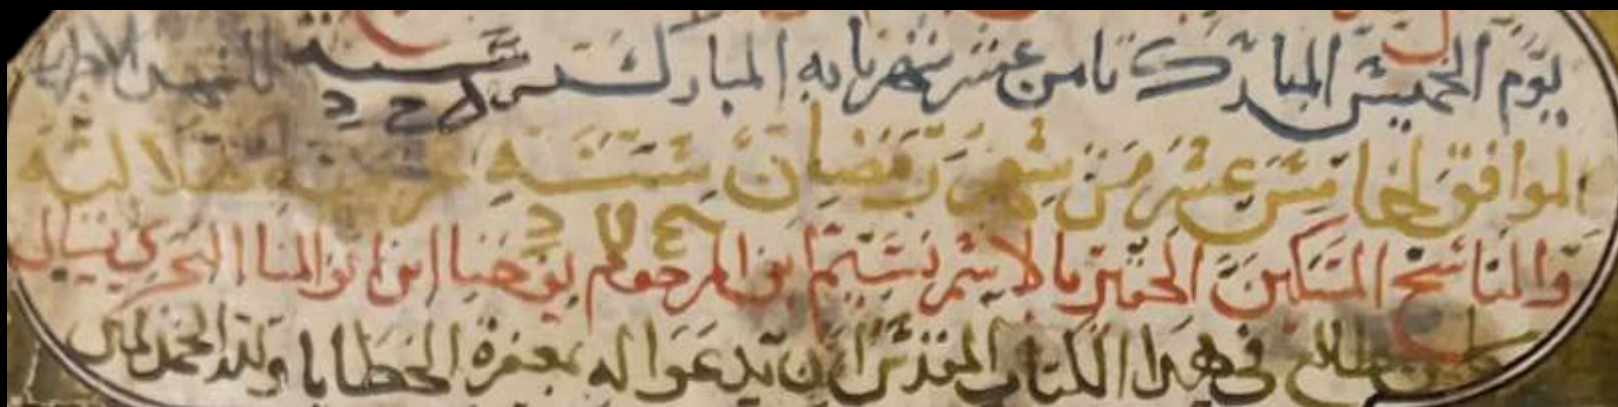 يوم الخميس المبارك ثامن عشر شهر بابه المبارك سنة للشهدا الاطهار
الموافق لخامس عشر من شهر رمضان سنة هلالية
والناسخ المسكين الحقير بالاسم نسيم ابن المرحوم يوحنا ابن ابو المنا يسال
كلمن طالع في هدا الكتاب المقدس ان يدعوا له بمغفرة الخطايا ولله الحمد